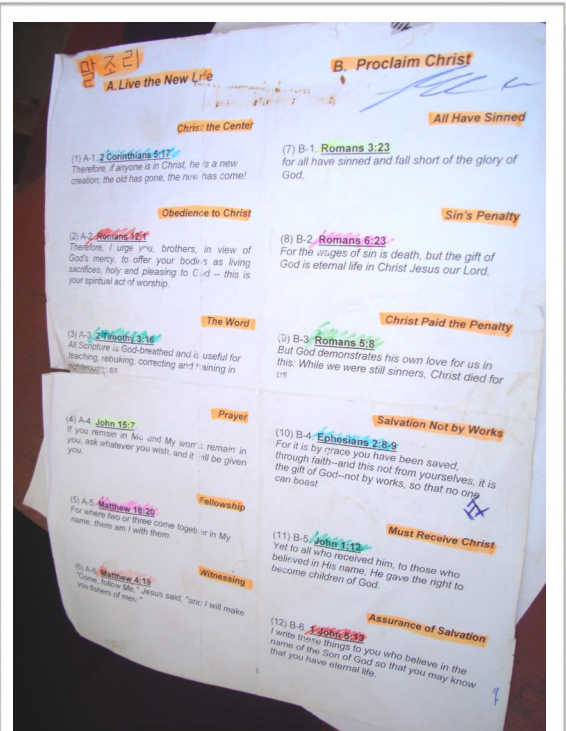 말조리
A. Live the New Life
Christ the Center
(1) A-1. 2 Corinthians 5:17
Therefore, if anyone is in Christ, he is a new
creation; the old has gone, the new has come!
Obedience to Christ
(2) A-2. Romans 12:1
Therefore, I urge you, brothers, in view of
God's mercy, to offer your bodies as living
sacrifices, holy and pleasing to God -- this is
your spiritual act of worship.
The Word
(3) A-3. 2 Timothy 3:16
All Scripture is God-breathed and is useful for
teaching, rebuking, correcting and training in
righteousness
Prayer
(4) A-4. John 15:7
If you remain in Me and My words remain in
you, ask whatever you wish, and it will be given
you.
Fellowship
(5) A-5. Matthew 18:20
For where two or three come together in My
name, there am I with them.
Witnessing
(6) A-6. Matthew 4:19
"Come, follow Me," Jesus said, "and I will make
you fishers of men."
B. Proclaim Christ
All Have Sinned
(7) B-1. Romans 3:23
for all have sinned and fall short of the glory of
God,
Sin's Penalty
(8) B-2. Romans 6:23
For the wages of sin is death, but the gift of
God is eternal life in Christ Jesus our Lord.
Christ Paid the Penalty
(9) B-3. Romans 5:8
But God demonstrates his own love for us in
this: While we were still sinners, Christ died for
us
Salvation Not by Works
(10) B-4. Ephesians 2:8-9
For it is by grace you have been saved,
through faith--and this not from yourselves, it is
the gift of God--not by works, so that no one
can boast
Must Receive Christ
(11) B-5. John 1:12
Yet to all who received him, to those who
believed in His name, He gave the right to
become children of God.
Assurance of Salvation
(12) B-6. 1 John 5:13
I write these things to you who believe in the
name of the Son of God so that you may know
that you have eternal life.
1